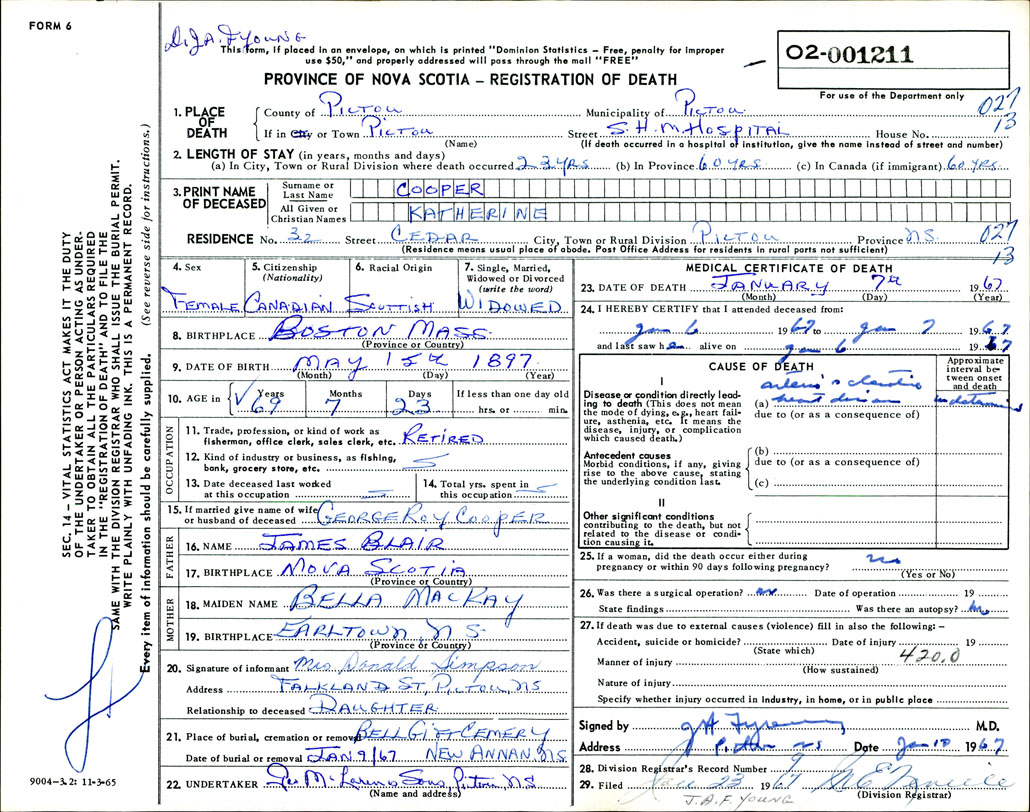 FORM 6
D. J.A.F. YOUNG
This form, if placed in an envelope, on which is printed "Dominion Statistics – Free, penalty for improper
use $50," and properly addressed will pass through the mail "FREE"
02-001211
For use of the Department only
PROVINCE OF NOVA SCOTIA – REGISTRATION OF DEATH
027
13
1. PLACE OF DEATH
County of PICTOU Municipality of PICTOU
If in City or Town PICTOU Street S.H.M. HOSPITAL House No.
(Name) (If death occurred in a hospital or institution, give the name instead of street and number)
2. LENGTH OF STAY (in years, months and days)
(a) In City, Town or Rural Division where death occurred 23 YRS (b) In Province 60 YRS. (c) In Canada (if immigrant) 60 YRS.
3. PRINT NAME OF DECEASED
Surname or Last Name COOPER
All Given or Christian Names KATHERINE
RESIDENCE No. 32 Street CEDAR City, Town or Rural Division PICTOU Province N.S. 027
(Residence means usual place of abode. Post Office Address for residents in rural parts not sufficient) 13
4. Sex
FEMALE
5. Citizenship (Nationality)
CANADIAN
6. Racial Origin
SCOTTISH
7. Single, Married, Widowed or Divorced (write the word)
WIDOWED
8. BIRTHPLACE BOSTON MASS.
(Province or Country)
9. DATE OF BIRTH MAY 15th 1897
(Month) (Day) (Year)
10. AGE in Years Months Days If less than one day old
69 7 23 hrs. or min.
OCCUPATION
11. Trade, profession, or kind of work as
fisherman, office clerk, sales clerk, etc. RETIRED
12. Kind of industry or business, as fishing,
bank, grocery store, etc.
13. Date deceased last worked
at this occupation
14. Total yrs. spent in
this occupation
15. If married give name of wife
or husband of deceased GEORGE ROY COOPER
FATHER
16. NAME JAMES BLAIR
17. BIRTHPLACE NOVA SCOTIA
(Province or Country)
MOTHER
18. MAIDEN NAME BELLA MACKAY
19. BIRTHPLACE EARLTOWN N.S.
(Province or Country)
20. Signature of informant Mrs Donald Simpson
Address FALKLAND ST, PICTOU, NS
Relationship to deceased DAUGHTER
21. Place of burial, cremation or removal NEW ANNAN N.S.
Date of burial or removal JAN 9/67
22. UNDERTAKER
(Name and address)
MEDICAL CERTIFICATE OF DEATH
23. DATE OF DEATH JANUARY 7th 1967
(Month) (Day) (Year)
24. I HEREBY CERTIFY that I attended deceased from:
Jan 6 1967 to Jan 7 1967
and last saw her alive on Jan 6 1967
CAUSE OF DEATH
Approximate interval between onset and death
I
Disease or condition directly leading to death (This does not mean the mode of dying, e.g., heart failure, asthenia, etc. It means the disease, injury, or complication which caused death.)
(a) heart disease
due to (or as a consequence of)
Antecedent causes
Morbid conditions, if any, giving rise to the above cause, stating the underlying condition last.
(b)
due to (or as a consequence of)
(c)
II
Other significant conditions
contributing to the death, but not related to the disease or condition causing it.
25. If a woman, did the death occur either during
pregnancy or within 90 days following pregnancy? no
(Yes or No)
26. Was there a surgical operation? no Date of operation 19
State findings Was there an autopsy? no
27. If death was due to external causes (violence) fill in also the following: –
Accident, suicide or homicide? Date of injury 19
(State which) 420.0
Manner of injury
(How sustained)
Nature of injury
Specify whether injury occurred in industry, in home, or in public place
Signed by M.D.
Address Pictou NS Date Jan 10 1967
28. Division Registrar's Record Number 9
29. Filed Jan 23 1967
J.A.F. YOUNG (Division Registrar)
SEC. 14 – VITAL STATISTICS ACT MAKES IT THE DUTY
OF THE UNDERTAKER OR PERSON ACTING AS UNDER-
TAKER TO OBTAIN ALL THE PARTICULARS REQUIRED
IN THE "REGISTRATION OF DEATH" AND TO FILE THE
SAME WITH THE DIVISION REGISTRAR WHO SHALL ISSUE THE BURIAL PERMIT.
WRITE PLAINLY WITH UNFADING INK. THIS IS A PERMANENT RECORD.
Every item of information should be carefully supplied. (See reverse side for instructions.)
9004-3.2: 11-3-65